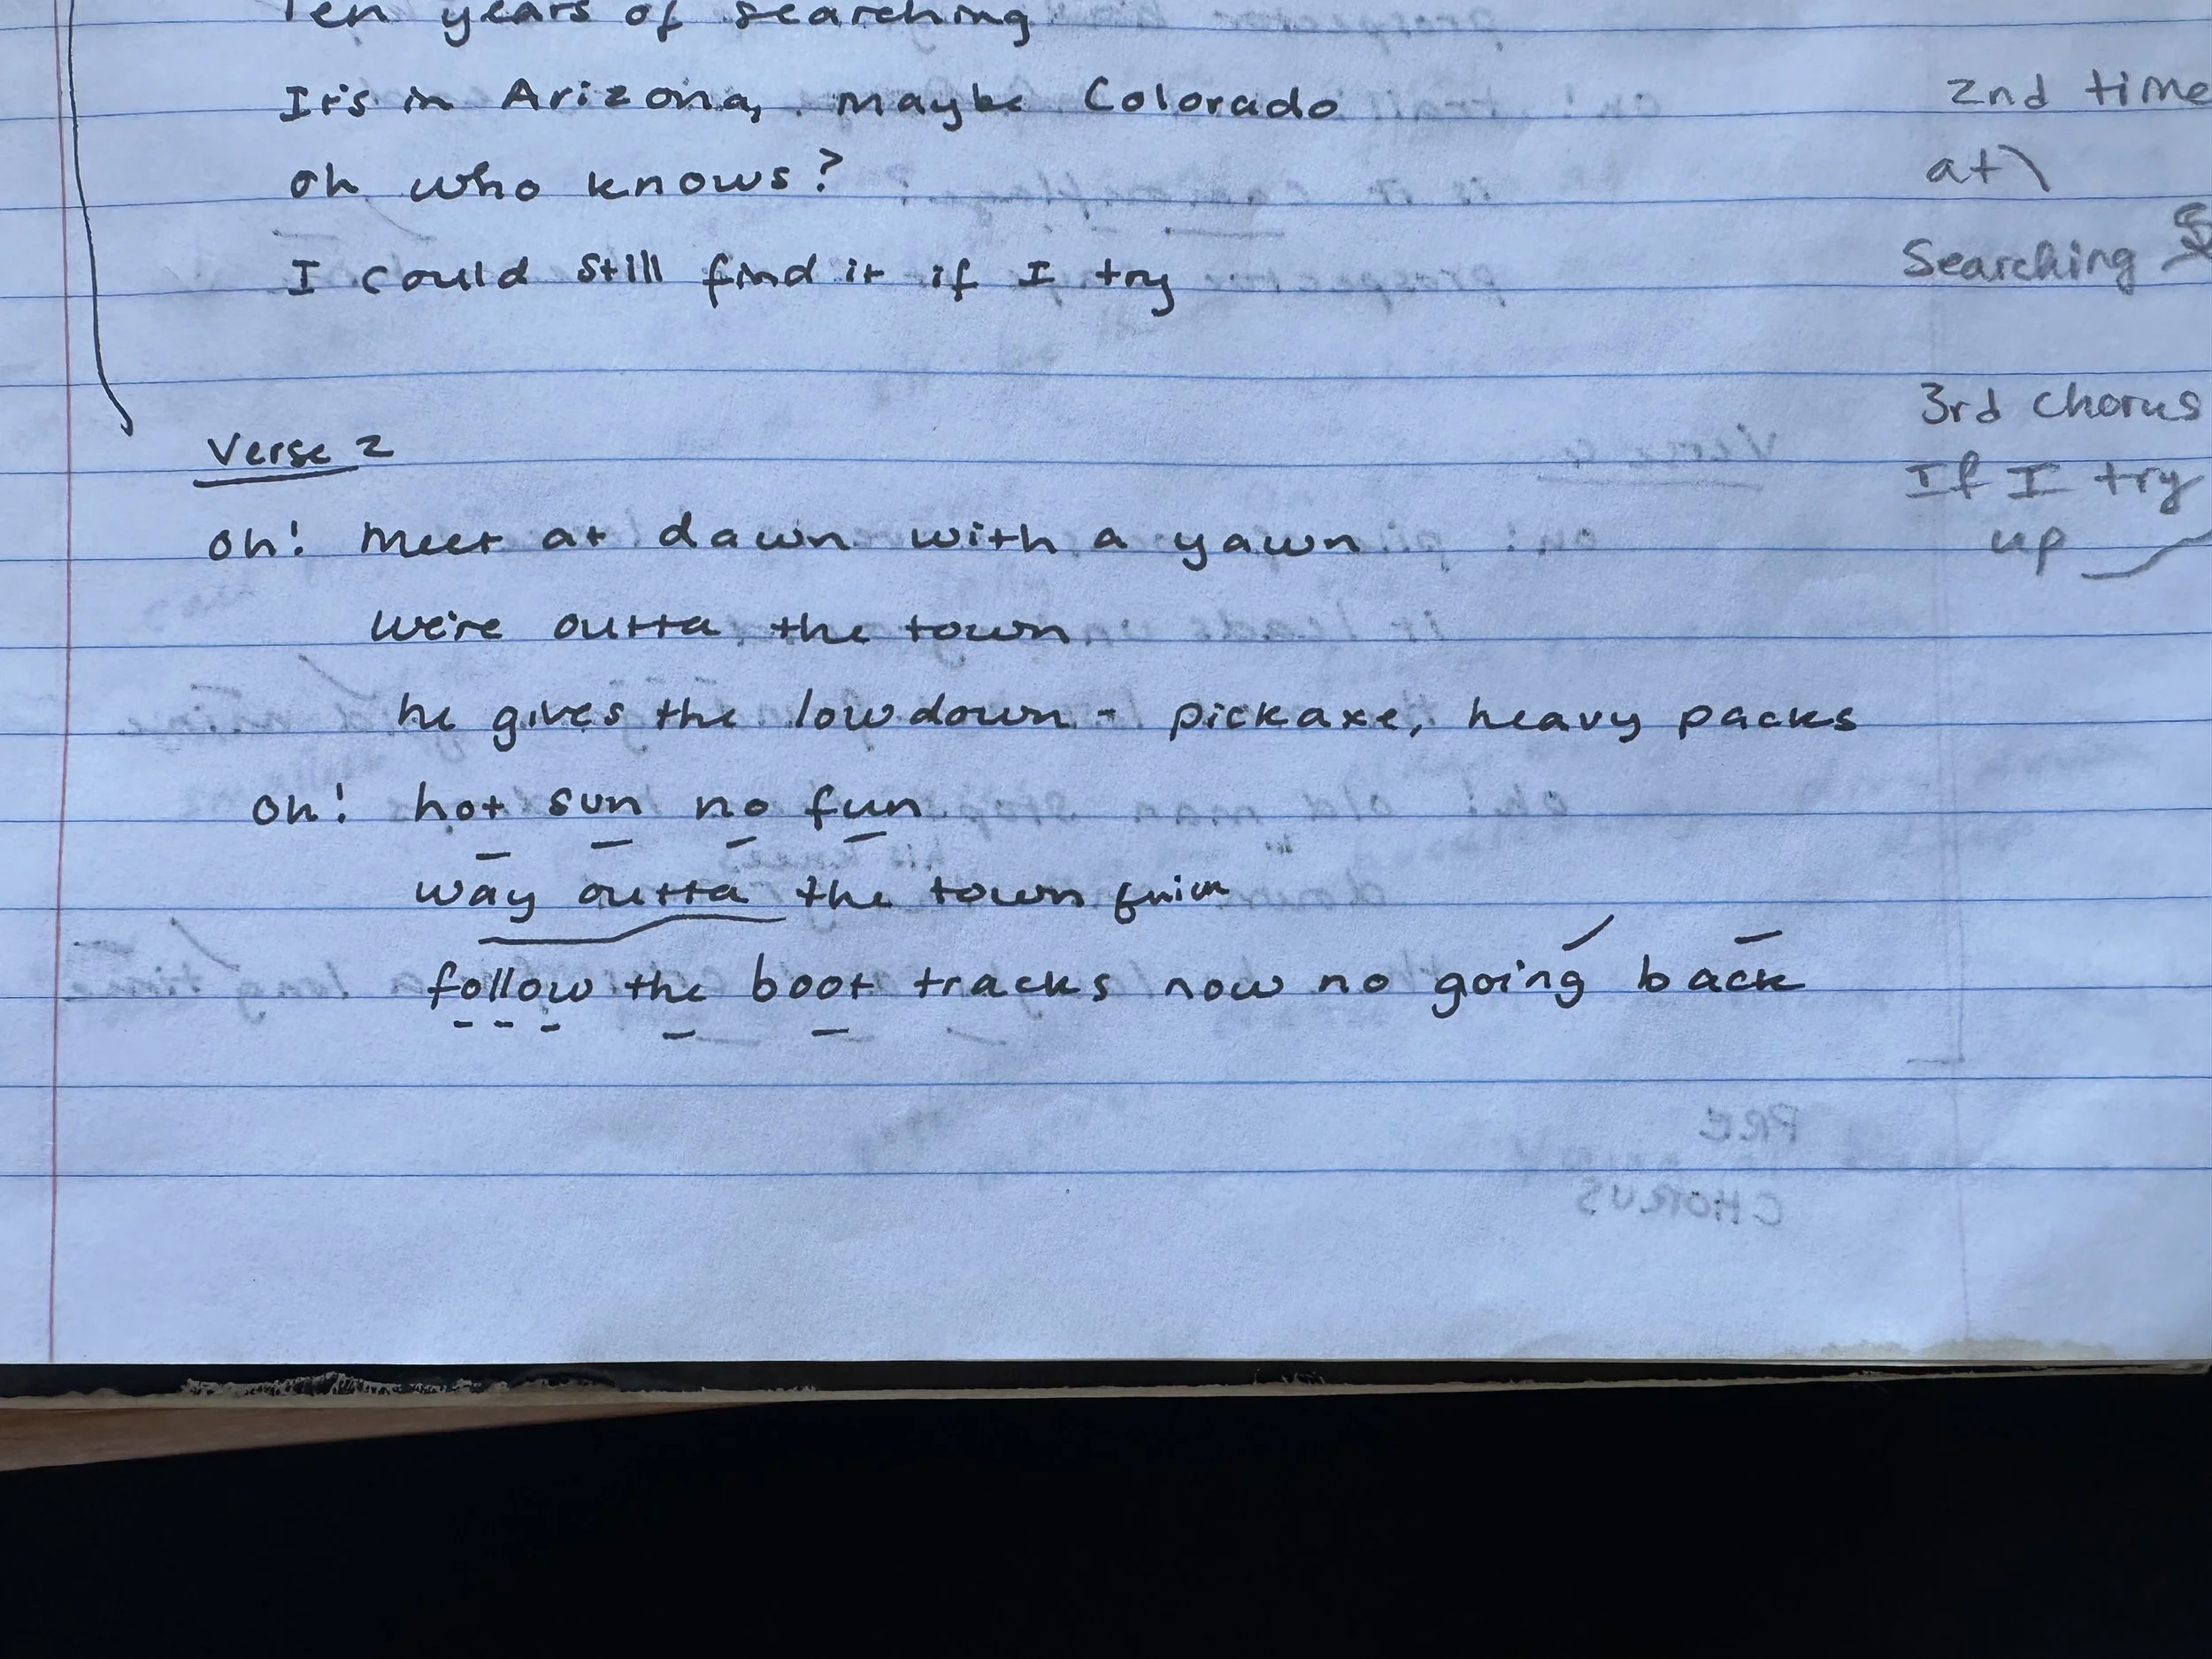 Ten years of searching
It's in Arizona, maybe Colorado
oh who knows?
I could still find it if I try
2nd time
at
Searching
3rd chorus
If I try
up
Verse 2
oh! meet at dawn with a yawn
we're outta the town
he gives the lowdown - pickaxe, heavy packs
oh! hot sun no fun
way outta the town
follow the boot tracks now no going back
PRE
CHORUS